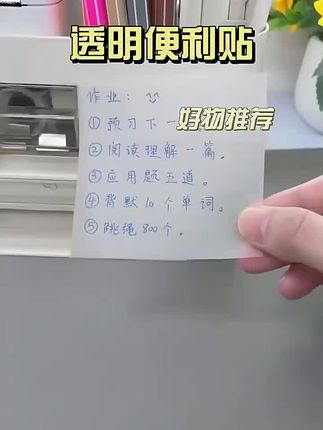 透明便利贴
作业：
①预习下一
好物推荐
②阅读理解一篇。
③应用题五道。
④背默10个单词。
⑤跳绳800个。